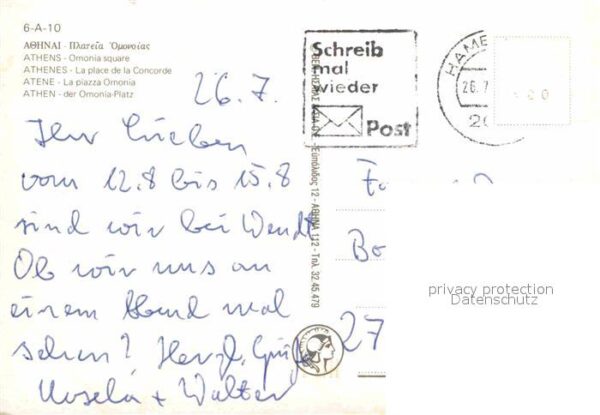 6-A-10
ΑΘΗΝΑΙ - Πλατεῖα Ὁμονοίας
ATHENS - Omonia square
ATHENES - La place de la Concorde
ATENE - La piazza Omonia
ATHEN - der Omonia-Platz
26.7.
Ihr Lieben
vom 12.8 bis 15.8
sind wir bei Wendt
Ob wir uns an
einem Abend mal
sehen? Herzl. Grüße
+ Walter
Schreib
mal
wieder
Post
HAME
26.7
Εὐπόλιδος 12 - ΑΘΗΝΑ 112 - Τηλ. 32.45.479
Bo
27
privacy protection
Datenschutz